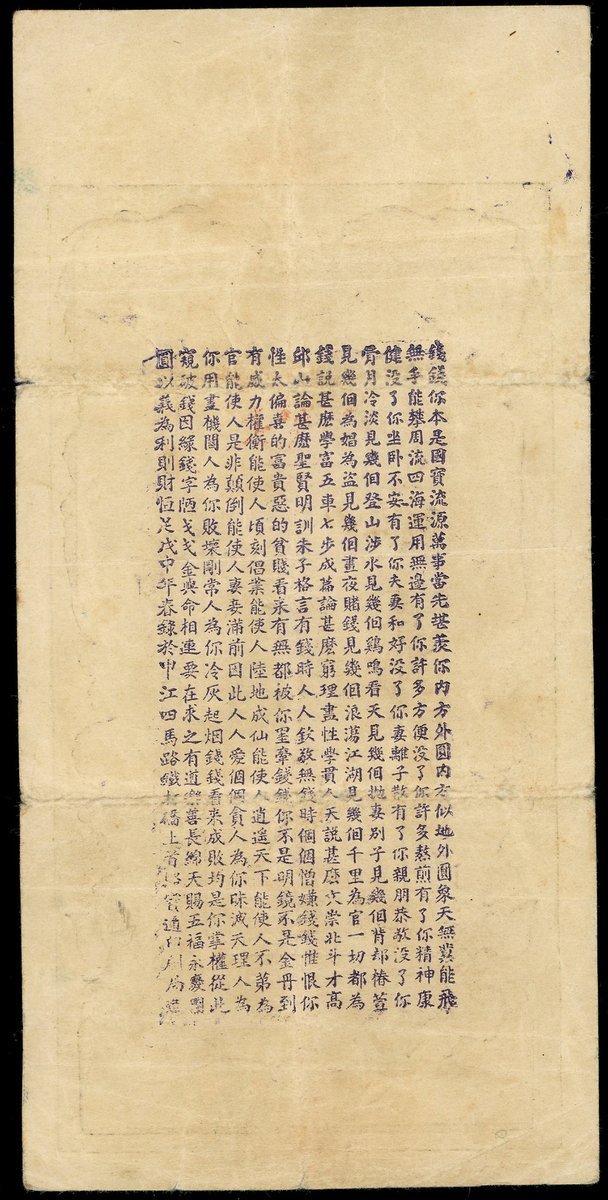 錢錢你本是國寶流源萬事當先堪羨你內方外圓內方似地外圓象天無翼能飛
無手能攀周流四海運用無邊有了你許多方便没了你許多熬煎有了你精神康
健没了你坐卧不安有了你夫妻和好没了你妻離子散有了你親朋恭敬没了你
骨月冷淡見幾個登山涉水見幾個鷄鳴看天見幾個拋妻別子見幾個背却椿萱
見幾個為娼為盜見幾個晝夜賭錢見幾個浪蕩江湖見幾個千里為官一切都為
錢説甚麽學富五車七步成篇論甚麽窮理盡性學貫人天説甚麽文崇北斗才高
邱山論甚麽聖賢明訓朱子格言有錢時人人欽敬無錢時個個憎嫌錢錢惟恨你
性太偏喜的富貴惡的貧賤看來有無都被你罣牽錢錢你不是明鏡不是金丹到
有威力權衡能使人頃刻倡業能使人陸地成仙能使人逍遙天下能使人不第為
官能使人是非顛倒能使人妻妾滿前因此人人愛個個貪人為你昧滅天理人為
你用盡機關人為你敗壞剛常人為你冷灰起烟錢錢看來成敗均是你掌權從此
窺破錢因緣錢字陋戈戈金與命相連要在求之有道樂善長綿天賜五福永慶團
圓以義為利則財恒足戊申年春錄於申江四馬路橋上首道局